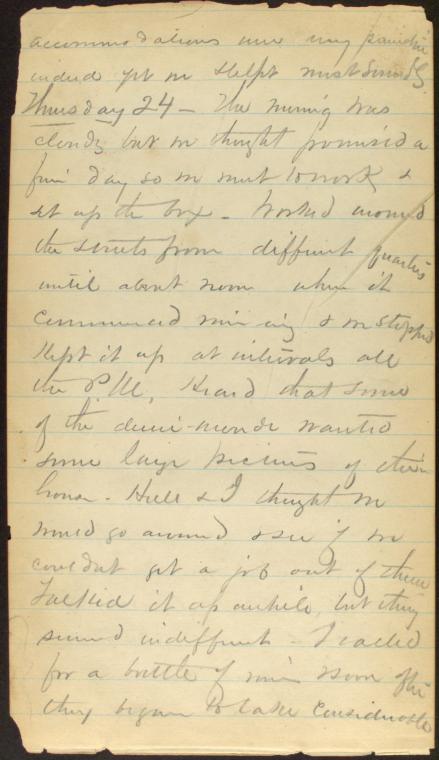 accommodations were very primitive
indeed yet we slept most soundly.
Thursday 24 — The morning was
cloudy but we thought promised a
fair day so we went to work &
set up the box — Worked around
the streets from different quarters
until about noon when it
commenced raining & we stopped
Kept it up at intervals all
the P.M. Heard that some
of the demi-monde wanted
some large pictures of their
house. Hull & I thought we
would go around & see if we
couldnt get a job out of them
Talked it up awhile, but they
seemed indifferent — I called
for a bottle of wine & soon after
they began to take considerable